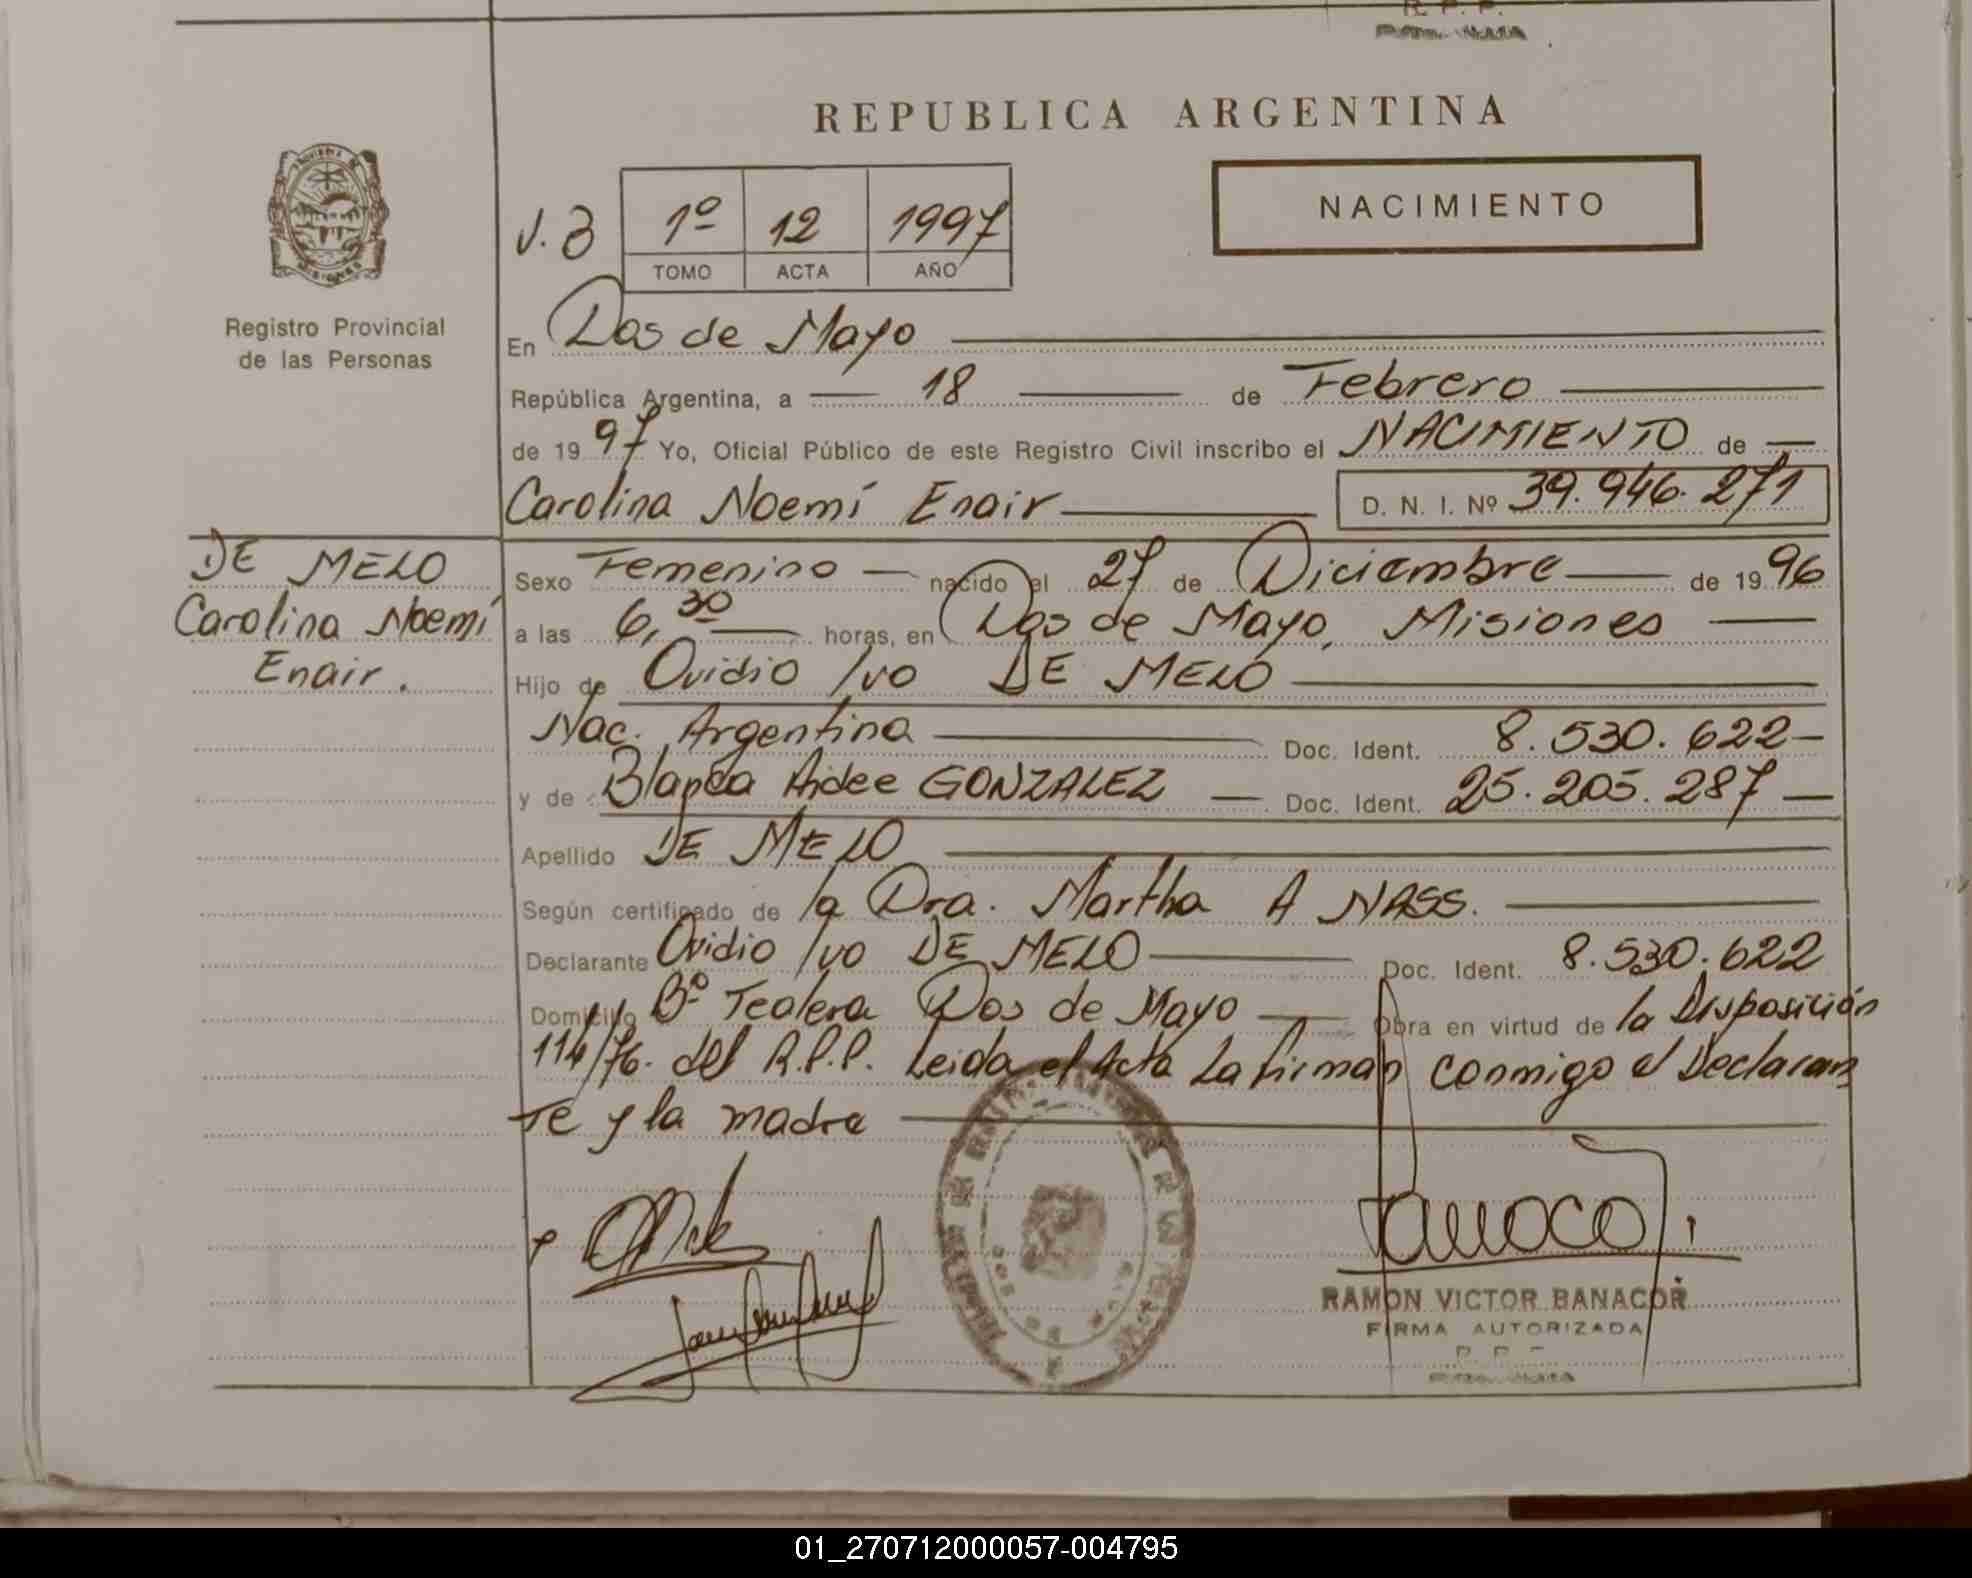 REPUBLICA ARGENTINA
NACIMIENTO
MISIONES
Registro Provincial
de las Personas
1º 12 1997
TOMO ACTA AÑO
En Dos de Mayo
República Argentina, a 18 de Febrero
de 1997 Yo, Oficial Público de este Registro Civil inscribo el NACIMIENTO de
Carolina Noemí Enair D. N. I. Nº 39.946.271
DE MELO
Carolina Noemí
Enair.
Sexo Femenino nacido el 27 de Diciembre de 1996
a las 6,30 horas, en Dos de Mayo, Misiones
Hijo de Ovidio Ivo DE MELO
Nac. Argentina Doc. Ident. 8.530.622
y de Blanca Aidee GONZALEZ Doc. Ident. 25.205.287
Apellido DE MELO
Según certificado de la Dra. Martha A NASS.
Declarante Ovidio Ivo DE MELO Doc. Ident. 8.530.622
Domicilio Bº Tealera Dos de Mayo Obra en virtud de la Disposición
114/76. del R.P.P. Leida el Acta La firman conmigo el Declaran
te y la madre
RAMON VICTOR BANACOR
FIRMA AUTORIZADA
01_270712000057-004795